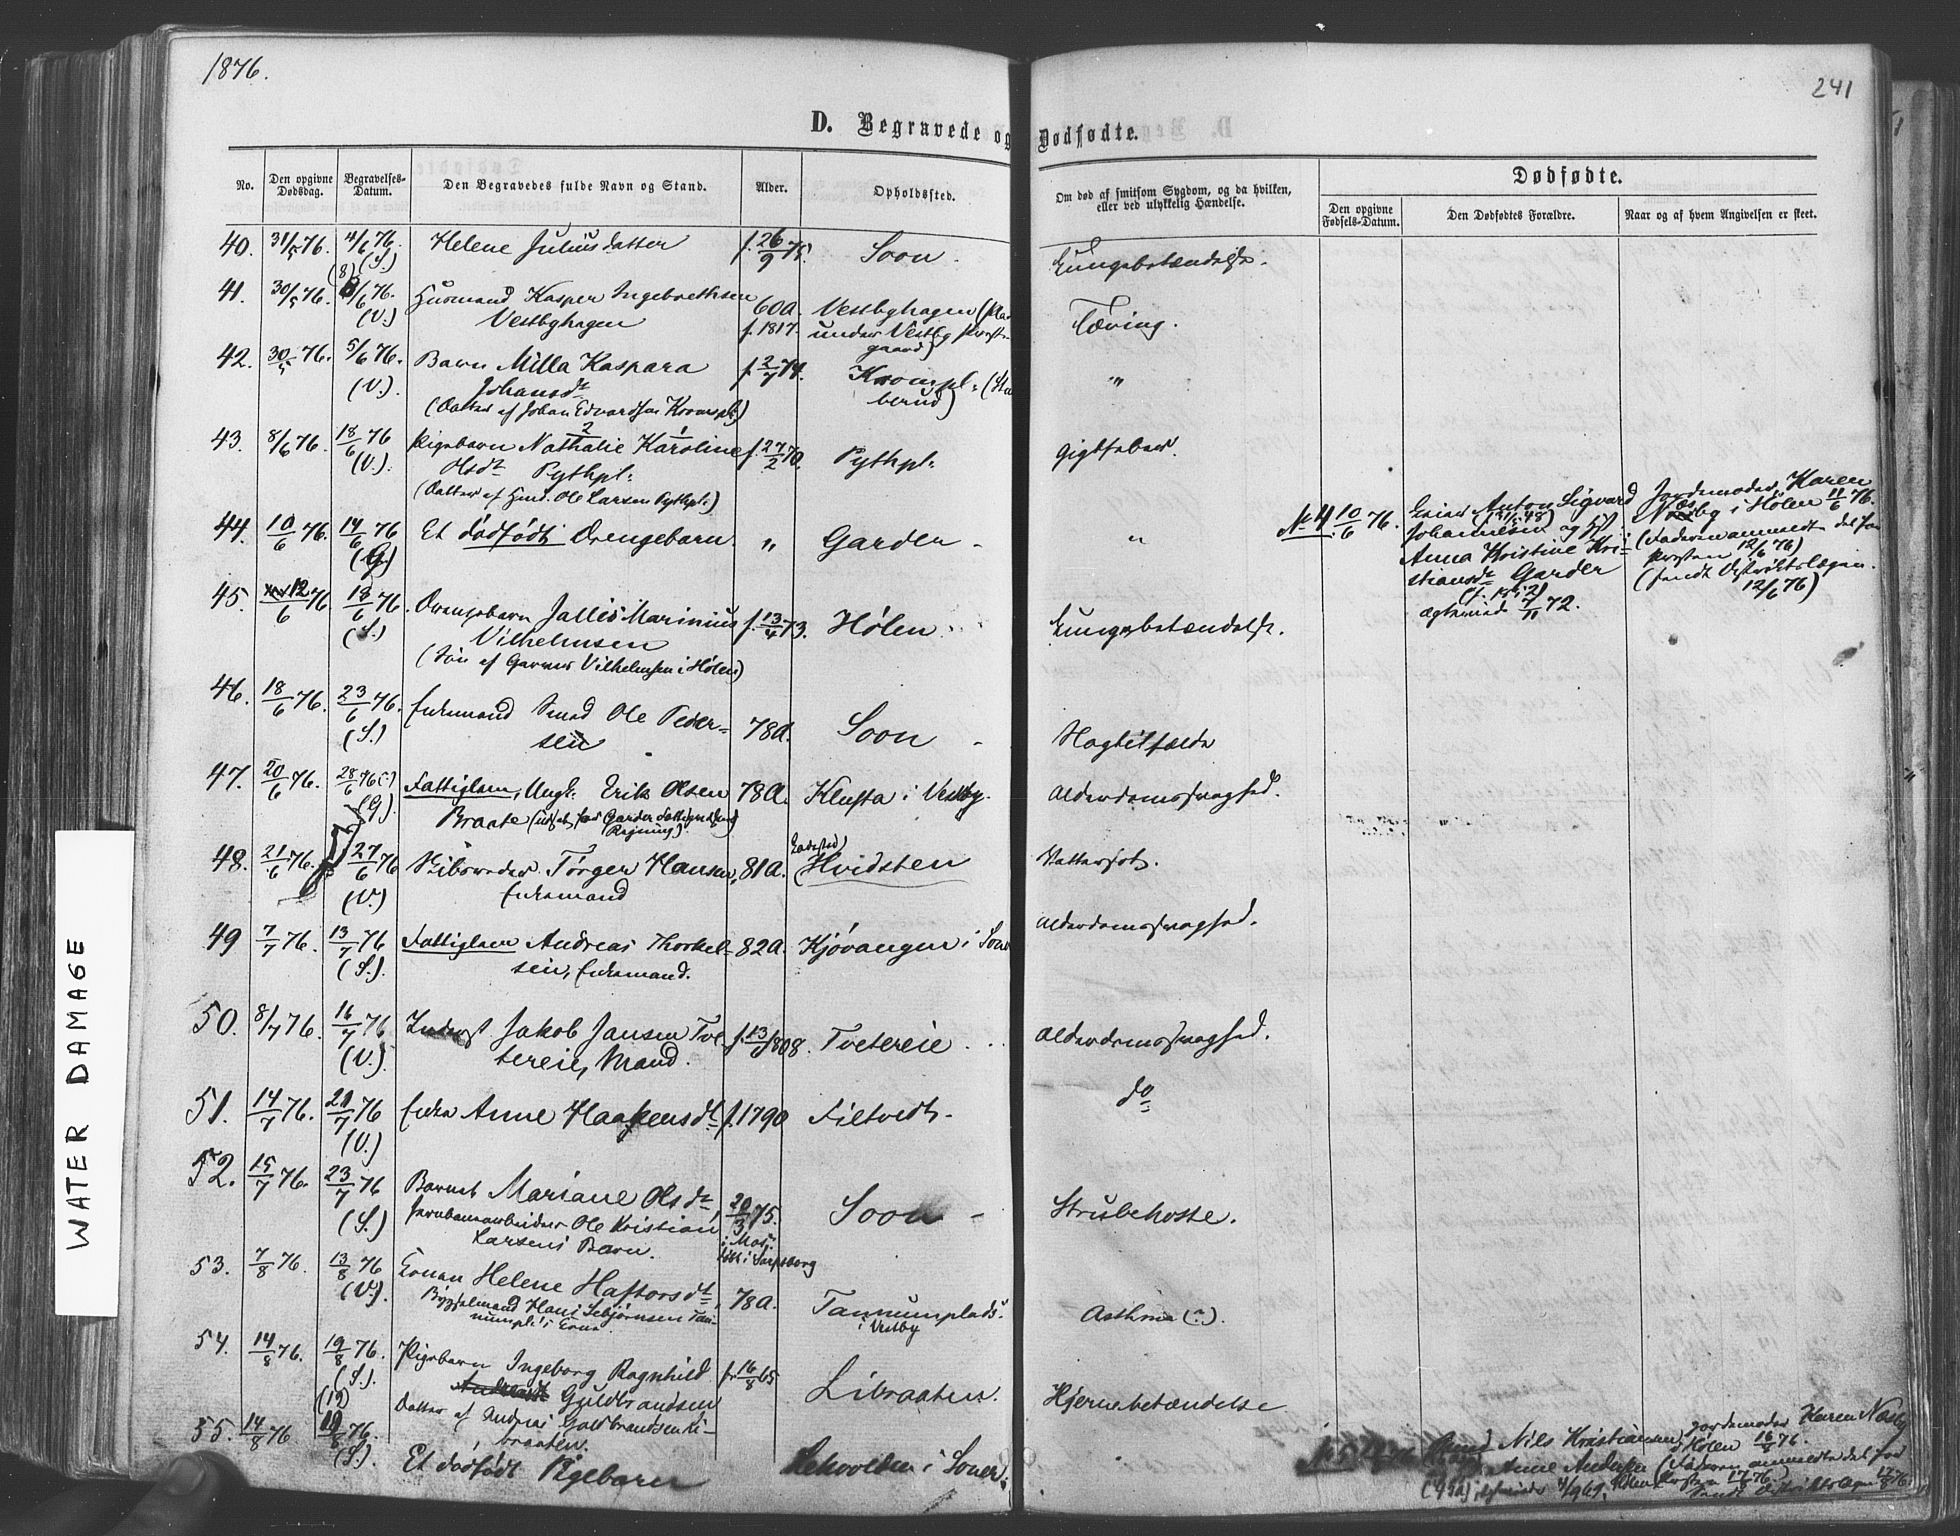 1876.
241
D. Begravede og Dødfødte.
No. Den opgivne Dødsdag. Begravelses-Datum. Den Begravedes fulde Navn og Stand. Alder. Opholdssted. Om død af smitsom Sygdom, og da hvilken, eller ved ulykkelig Hændelse.
Dødfødte.
Den opgivne Fødsels-Datum. Den Dødfødtes Forældre. Naar og af hvem Angivelsen er skeet.
40. 31/5 76. 11/6 76. (S.) Helene Juliusdatter f. 26/9 75. Soon. Lungebetændelse.
41. 30/5 76. (8) /6 76. (V.) Husmand Kasper Ingebrethsen
Vestbyhagen 60 a. f. 1817. Vestbyhagen (Pla
under Vestby Præste-
gaard) Tæring.
42. 30/5 76. 5/6 76. (V.) Barn Milla Kaspara
Johansdr
(Datter af Johan Edvardsen Krompl:) f. 2/7 74. Krompl: (
berud) "
43. 8/6 76. 18/6 76 (V.) Pigebarn Nathalie Karoline
2 1
Olsdr Pythpl:
(Datter af Husd. Ole Larsen Pythpl:) f. 27/2 70. Pythpl: Gigtfeber.
44. 10/6 76. 14/6 76 (G.) Et dødfødt Drengebarn. " Garder - "
No 4. 10/6 76. Anton Sigvard
Johannesen og Hst
Anna Kristine Kri-
stiansdr Garder
ægteviede 7/11 72.
Jordemoder Karen
Næsby i Hølen 11/6 76.
(Faderen anmeldt det for
Præsten 12/6 76)
(sendt Distriktslægen
12/6 76)
45. 12/6 76 18/6 76. (S.) Drengebarn Jallis Marinius
Vilhelmsen
(Søn af Garver Vilhelmsen i Hølen) f. 13/4 73. Hølen. Lungebetændelse.
46. 18/6 76. 23/6 76. (S.) Enkemand Smed Ole Peder-
sen 78 a. Soon - Slagtilfælde
47. 20/6 76. 28/6 76 (G). Fattiglem, Ungk. Erik Olsen
Braate (udsat for Garder Fattigvæsens
Regning) 78 a. Klufta i Vestby. Alderdomssvaghed.
48. 21/6 76. 27/6 76 (V.) Skibsreder Tørger Hansen,
Enkemand 81 a. (Ladested)
Hvidsten Vattersot.
49 7/7 76. 13/7 76 (S.) Fattiglem Andreas Thorkel-
sen, Enkemand. 82 a. Kjøvangen i Soner Alderdomssvaghed.
50. 8/7 76. 16/7 76 (V.) Inderst Jakob Jansen Tve-
tereie, Mand. f. 13/ 1808. Tvetereie Alderdomssvaghed.
51. 14/7 76. 21/7 76 (V.) Enke Anne Haakensdr f. 1790 Fietvedt - do
52. 15/7 76. 23/7 76 (S.) Barnet Mariane Olsdr,
Jernbanearbeider Ole Kristian
Larsens Barn. 20/3 75.
i Mos,
døbt i Sarpsborg Soon - Strubehoste.
53. 7/8 76. 13/8 76 (V.) Konen Helene Haftorsdr,
Bygselmand Hans Sebjørnsen Tan-
numpl:'s Kone. 78 a. Tannumplads
i Vestby Asthma (?).
54. 14/8 76. 19/8 76. (S.) Pigebarn Ingeborg Ragnhild
Guldbrandsen
Datter af Andreas Guldbrandsen Li-
braaten. f. 16/8 65 Libraaten. Hjernebetændelse
55. 14/8 76 (12) 19/8 76. (S.) Et dødfødt Pigebarn i Soner.
No 5. Nils Kristiansen
Anne Andersen
Jordemoder Karen Næsby
i Hølen 16/8 76.
(Faderen anmeldte det for
Præsten 17/8 76)
sendt Distriktslægen 17/8 76.
WATER DAMAGE